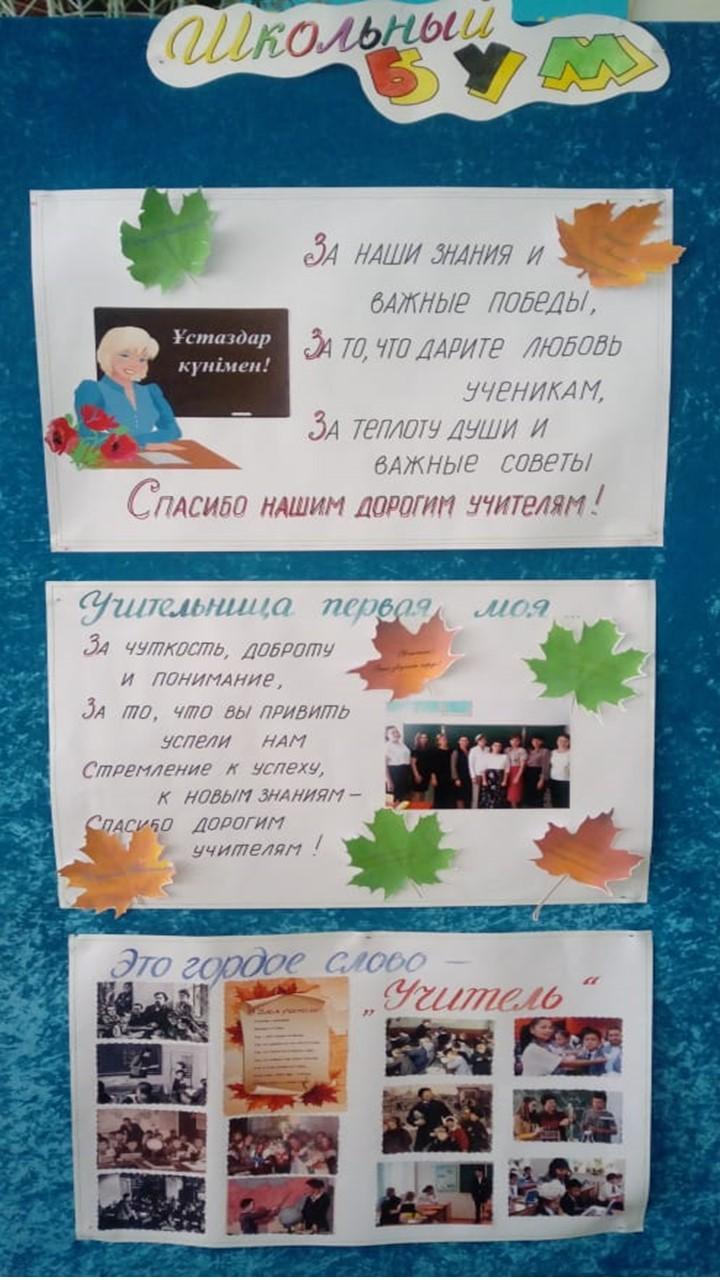 Школьный
БУМ
За наши знания и
важные победы,
За то, что дарите любовь
ученикам,
За теплоту души и
важные советы
Спасибо нашим дорогим учителям!
Ұстаздар
күнімен!
Учительница первая моя...
За чуткость, доброту
и понимание,
За то, что вы привить
успели нам
Стремление к успеху,
к новым знаниям –
Спасибо дорогим
учителям!
Это гордое слово –
„Учитель“